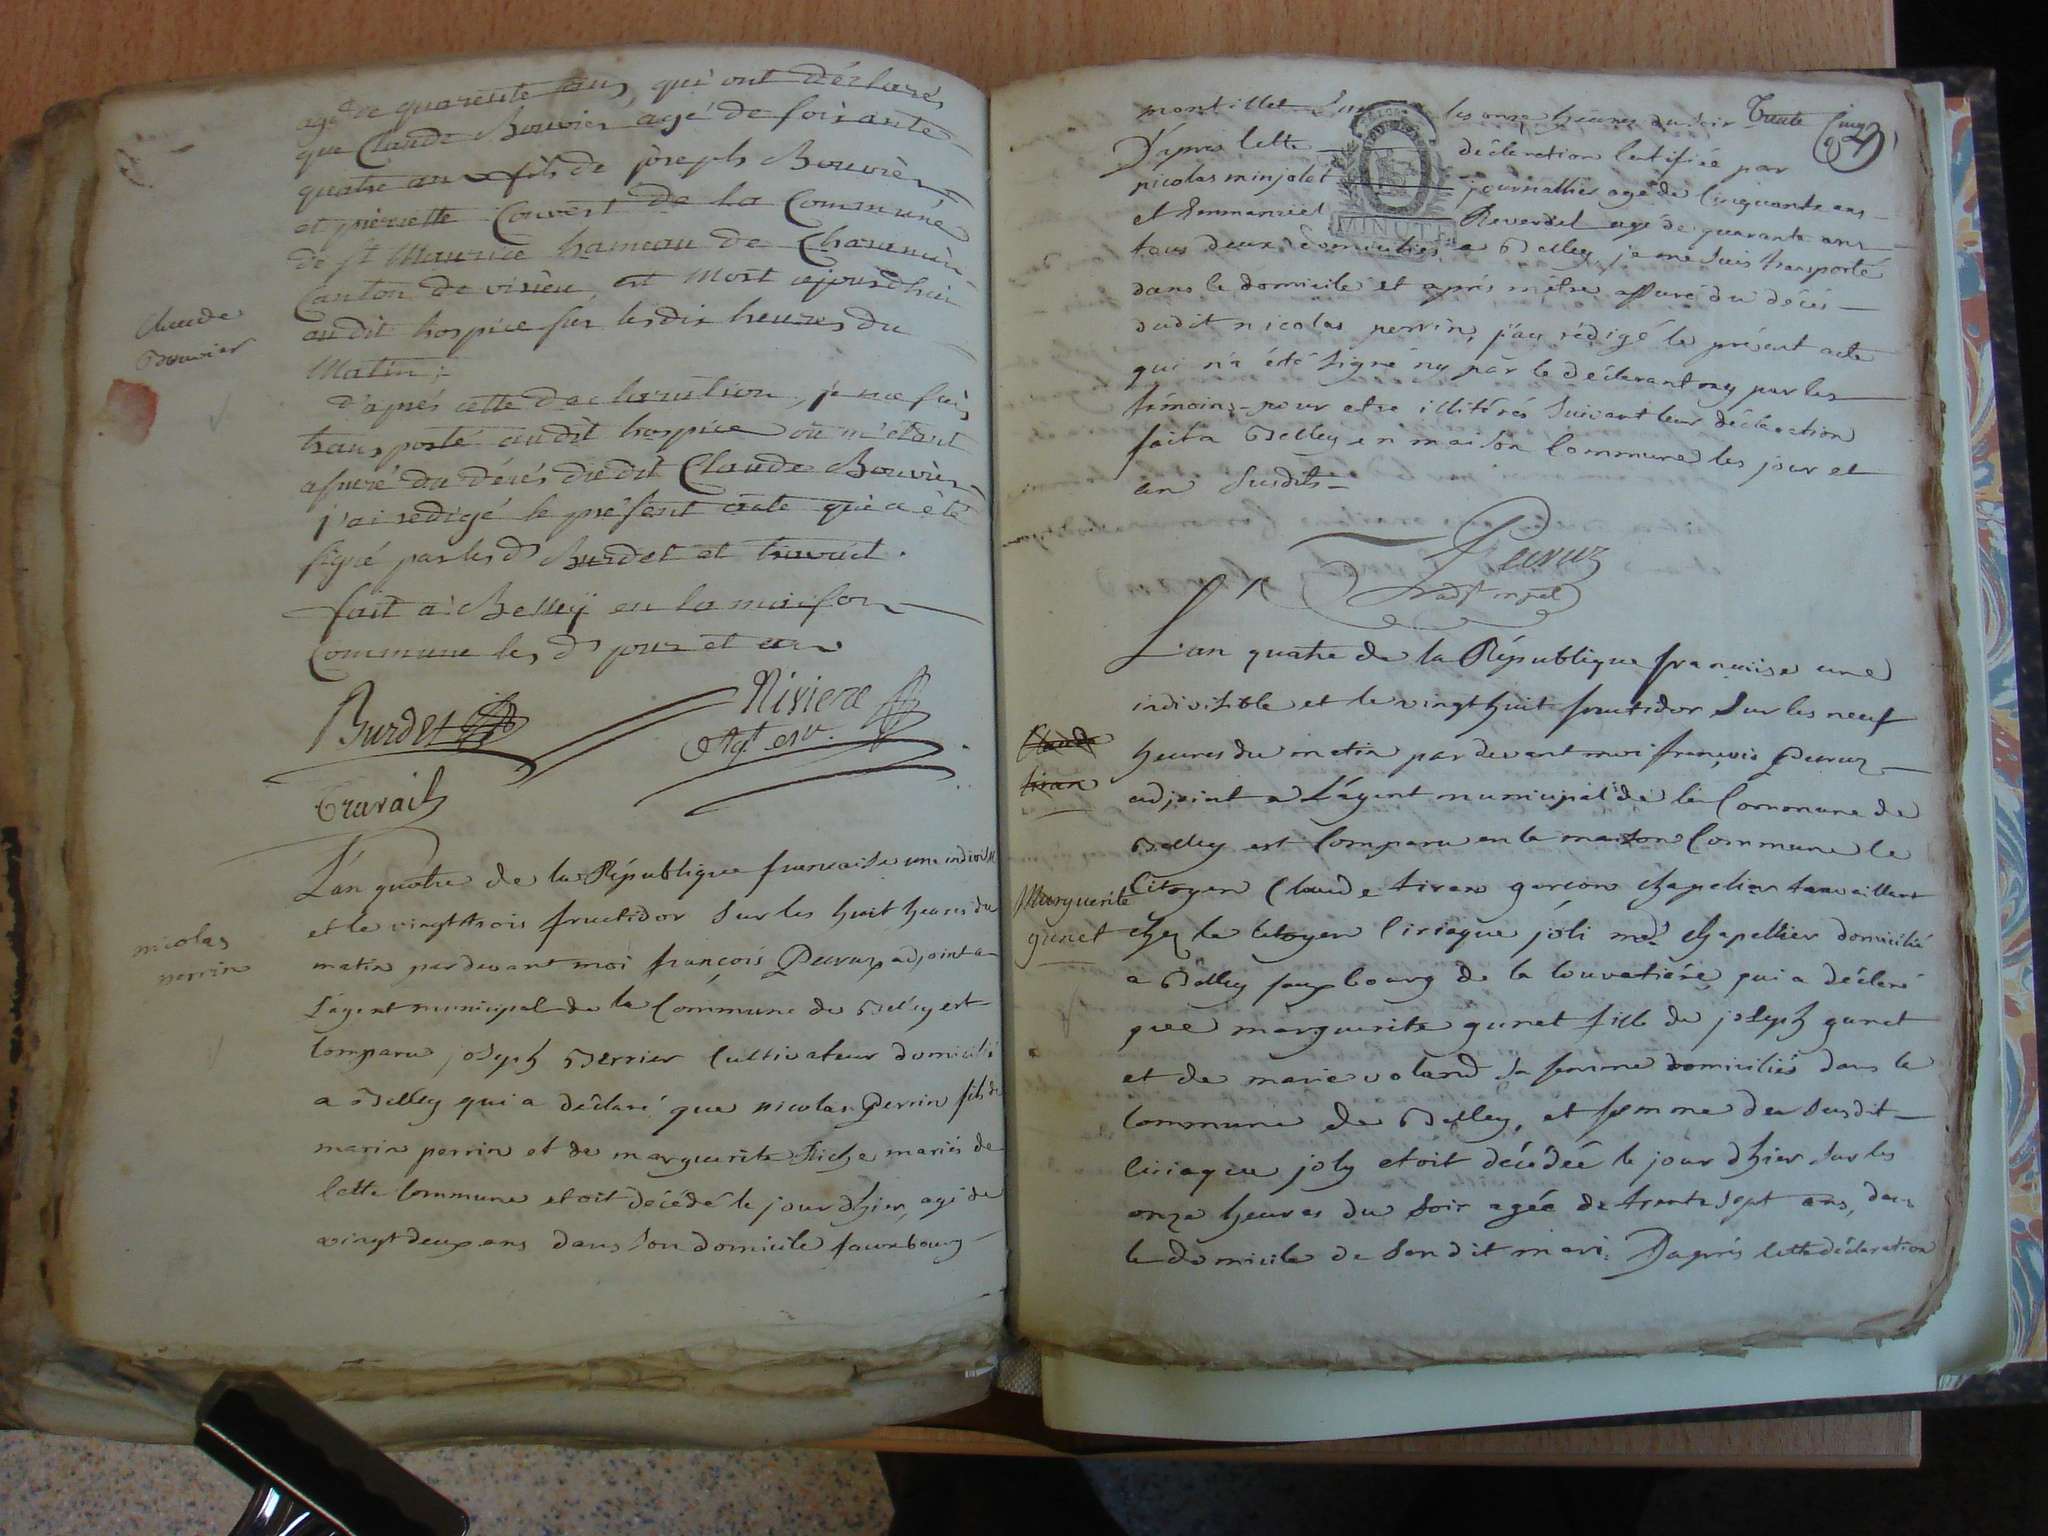 agé de quarente ans, qui ont déclarés
que Claude Bouvier agé de soixante
quatre ans fils de joseph Bouvier
et pierrette Couvert de la Commune
de St Maurice hameau de
Canton de virieu, est Mort cejourdhui
audit hospice sur les dix heures du
Matin;
Claude
Bouvier
d'aprés cette declaration, je me suis
transporté audit hospice ou m'étant
assuré du décés dudit Claude Bouvier
j'ai redigé le présent acte qui a été
signé par les d Burdet et travail.
fait a Belleÿ en la maison
Commune les d jour et an.
Burdet
Riviere
Agt
Travail
L'an quatre de la République francaise une indivisible
et le vingt trois fructidor sur les huit heures du
nicolas
perrin
matin pardevant moi françois Peruz adjoint a
L'agent municipal de la Commune de Belley est
Comparu joseph Berrier Cultivateur domicilié
a Belley qui a déclaré que nicolas Perrin fils de
marin perrin et de marguerite mariés de
Cette Commune etoit décédé le jour dhier, agé de
vingt deux ans dans son domicile fauxbourg
montillet Sur les onze heures du soir
Trente Cinq
D'apres Cette déclaration Certifiée par
nicolas minjolet journallier agé de Cinquante ans
et Emmanuel Reverdet agé de quarante ans
MINUTE
tous deux domiciliés a Belley je me suis transporté
dans le domicile et aprés m'étre assuré du décés
dudit nicolas perrin, j'ay rédigé le présent acte
qui n'a été signé ny par le déclarant ny par les
témoins pour etre illitérés suivant leur déclaration
fait a Belley en maison Commune les jour et
an susdits
Peruz
L'an quatre de la République francaise une
indivisible et le vingt huit fructidor sur les neuf
Claude
tiran
heures du matin pardevant moi françois Peruz
adjoint a L'agent municipal de la Commune de
Belley est Comparu en la maison Commune le
Marguerite
gunet
Citoyen Claude tiran garçon chapelier travaillant
chez le Citoyen Ciriaque joli md chapellier domicilié
a Belley fauxbourg de la louvatiére, qui a déclaré
que marguerite gunet fille de joseph gunet
et de marie voland sa femme domiciliés dans la
Commune de Belley, et femme du susdit
Ciriaque joly etoit décédée le jour dhier sur les
onze heures du soir agée de trente sept ans, dans
le domicile de son dit mari. D'aprés Cette déclaration